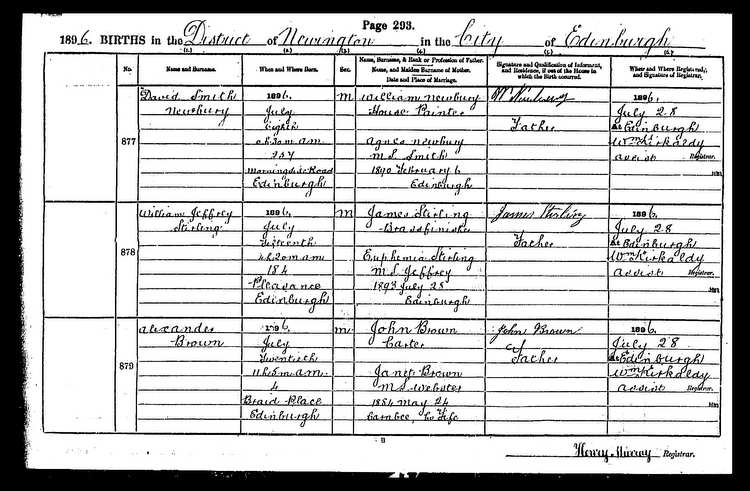 Page 293.
1896. BIRTHS in the District of Newington in the City of Edinburgh
(1.) (2.) (3.) (4.) (5.) (6.)
No. Name and Surname. When and Where Born. Sex. Name, Surname, & Rank or Profession of Father. Name, and Maiden Surname of Mother. Date and Place of Marriage. Signature and Qualification of Informant, and Residence, if out of the House in which the Birth occurred. When and Where Registered, and Signature of Registrar.
877
David Smith
Newbury
1896.
July
Eighth
0h.30m am
257
Morningside Road
Edinburgh
M
William Newbury
House Painter
Agnes Newbury
M.S. Smith
1890 February 6
Edinburgh
Wm Newbury
Father
1896.
July 28
At Edinburgh
Wm Kirkaldy
Assist Registrar.
878
William Jeffrey
Stirling
1896.
July
Fifteenth
4h.20m am
184
Pleasance
Edinburgh
M
James Stirling
Brassfinisher
Euphemia Stirling
M.S. Jeffrey
1893 July 28
Edinburgh
James Stirling
Father
1896.
July 28
At Edinburgh
Wm Kirkaldy
Assist Registrar.
879
Alexander
Brown
1896.
July
Twentieth
11h.5m am.
4
Braid Place
Edinburgh
M.
John Brown
Carter
Janet Brown
M.S. Webster
1884 May 24
Carnbee, Co Fife
John Brown
Father
1896.
July 28
At Edinburgh
Wm Kirkaldy
Assist Registrar.
Henry Murray Registrar.